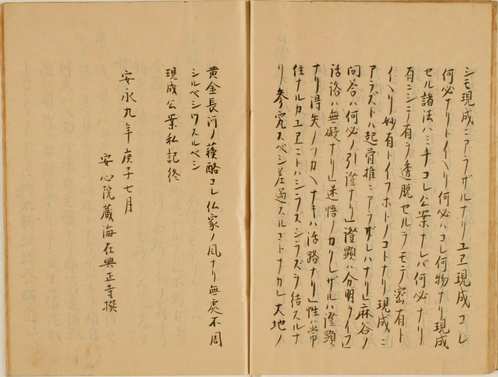 シモ現成ニアラザルナリユヱ現成コレ
何必ナリトイヘリ何必ハコレ何物ナリ現成
セル諸法ハミナコレ公案ナレバ何必ナリ
有ニシテ有ヲ透脱セルヲモテ密有ト
イヘリ妙有トイフホドノコトナリ現成ニ
アラズトハ起骨推ニアラザレハナリ」麻谷ノ
問答ハ何必ノ引證ナリ」證驗ハ分明ヲイフ
活路ハ無礙ナリ」迷悟ノカヽレザルハ證驗
ナリ得失ノツカヘナキハ活路ナリ」性ハ常
住ナルカユヱニトハシラズシラズヲ結スルナ
リ参究スベシ差過スルコトナカレ」大地ノ
黄金長河ノ蘇酪コレ仏家ノ風ナリ無處不周
シルベシワスルベシ
現成公案私記終
安永九年庚子七月
安心院蔵海在興正寺撰